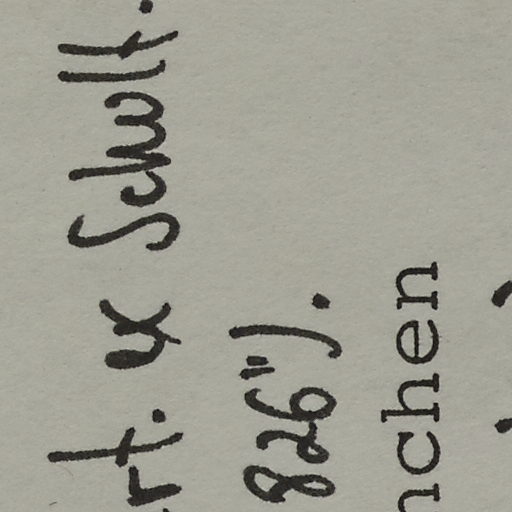 rt. & Schult.
826").
nchen